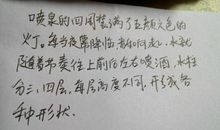 喷泉的四周装满了五颜六色的
灯。每当夜幕降临音乐响起,水柱
随着节奏往上前后左右喷洒,水柱
分三、四层,每层高度不同,形成各
种形状.